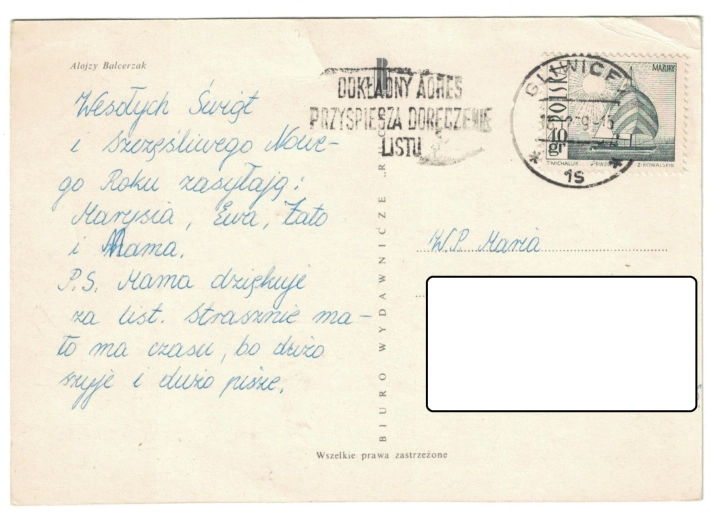 Alojzy Balcerzak
Wesołych Świąt
i Szczęśliwego Nowe-
go Roku zasyłają:
Marysia, Ewa, Tato
i Mama.
P.S. Mama dziękuje
za list. Strasznie ma-
ło ma czasu, bo dużo
szyje i dużo pisze.
DOKŁADNY ADRES
PRZYSPIESZA DORĘCZENIE
LISTU
GLIWICE
1s
POLSKA
40
gr
MAZURY
T. MICHALUK
Z. KOWALSKI
W.P. Maria
BIURO WYDAWNICZE „R
Wszelkie prawa zastrzeżone